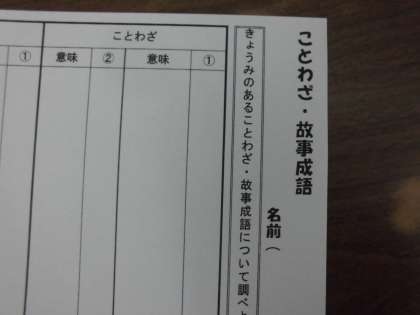 ことわざ・故事成語
名前（
きょうみのあることわざ・故事成語について調べ
ことわざ
①
意味
②
意味
①